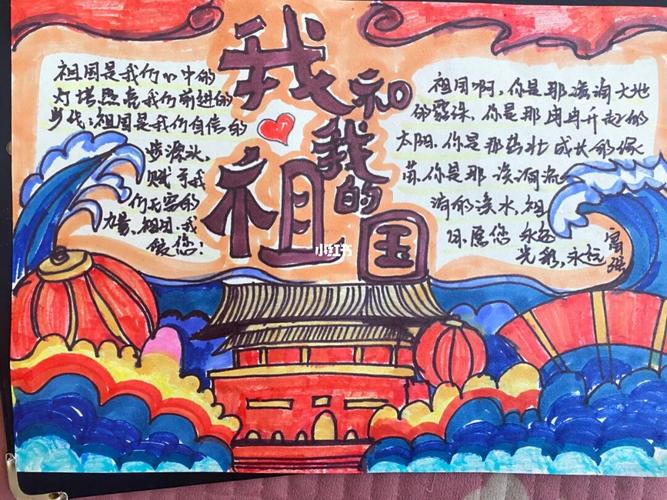 我和
我的
祖国
祖国是我们心中的
灯塔照亮我们前进的
步伐;祖国是我们自信的
源头,
赋予我
们无穷的
力量。祖国,我
爱您!
祖国啊,你是那滋润大地
的露珠,你是那冉冉升起的
太阳,你是那茁壮成长的
你是那流
淌的溪水,祖
国,愿您永远
光彩,永远富强
小红书